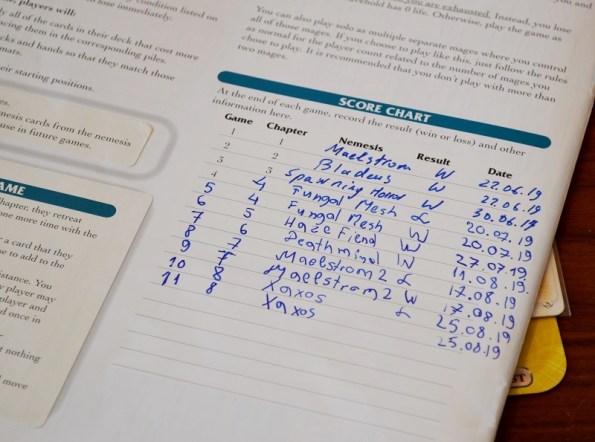 condition listed on
lose immediately.
players will:
all of the cards in their deck that cost more
them in the corresponding piles.
and hands so that they match those
mats.
starting positions.
cards from the nemesis
use in future games.
chapter, they retreat
one more time with the
a card that they
to add to the
You
may
player and
once in
nothing
move
are exhausted. Instead, you lose
has 0 life. Otherwise, play the game as
You can also play solo as multiple separate mages where you control
all of those mages. If you choose to play like this, just follow the rules
as normal for the player count related to the number of mages you
chose to play. It is recommended that you don't play with more than
two mages.
SCORE CHART
At the end of each game, record the result (win or loss) and other
information here.
Game Chapter Nemesis Result Date
1 1 Maelstrom W 22.06.19
2 2 Bladeus W 22.06.19
3 3 Spawning Horror W 30.06.19
4 4 Fungal Mesh L 20.07.19
5 4 Fungal Mesh W 20.07.19
6 5 Haze Fiend W 27.07.19
7 6 Deathmind W 11.08.19.
8 7 Maelstrom 2 L 17.08.19
9 7 Maelstrom 2 W 17.08.19
10 8 Xaxos L 25.08.19
11 8 Xaxos 25.08.19